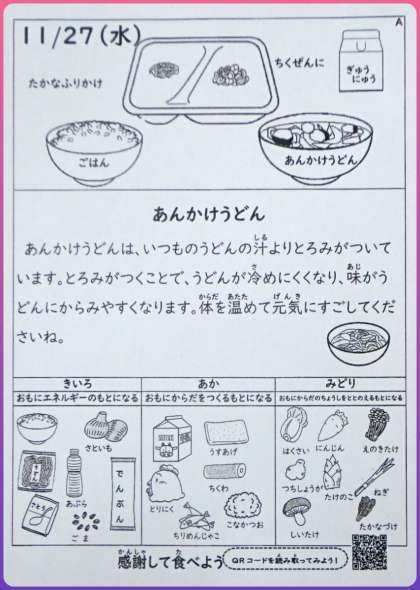 A
11/27(水)
たかなふりかけ
ちくぜんに
ぎゅう
にゅう
ごはん
あんかけうどん
あんかけうどん
あんかけうどんは、いつものうどんの汁よりとろみがついて
います。とろみがつくことで、うどんが冷めにくくなり、味がう
どんにからみやすくなります。体を温めて元気にすごしてくだ
さいね。
きいろ
おもにエネルギーのもとになる
あか
おもにからだをつくるもとになる
みどり
おもにからだのちょうしをととのえるもとになる
さといも
うどん
あぶら
さとう
ごま
でんぷん
うすあげ
とりにく
ちくわ
こなかつお
ちりめんじゃこ
はくさい
にんじん
えのきたけ
つちしょうが
たけのこ
ねぎ
しいたけ
たかなづけ
感謝して食べよう
QRコードを読み取ってみよう!